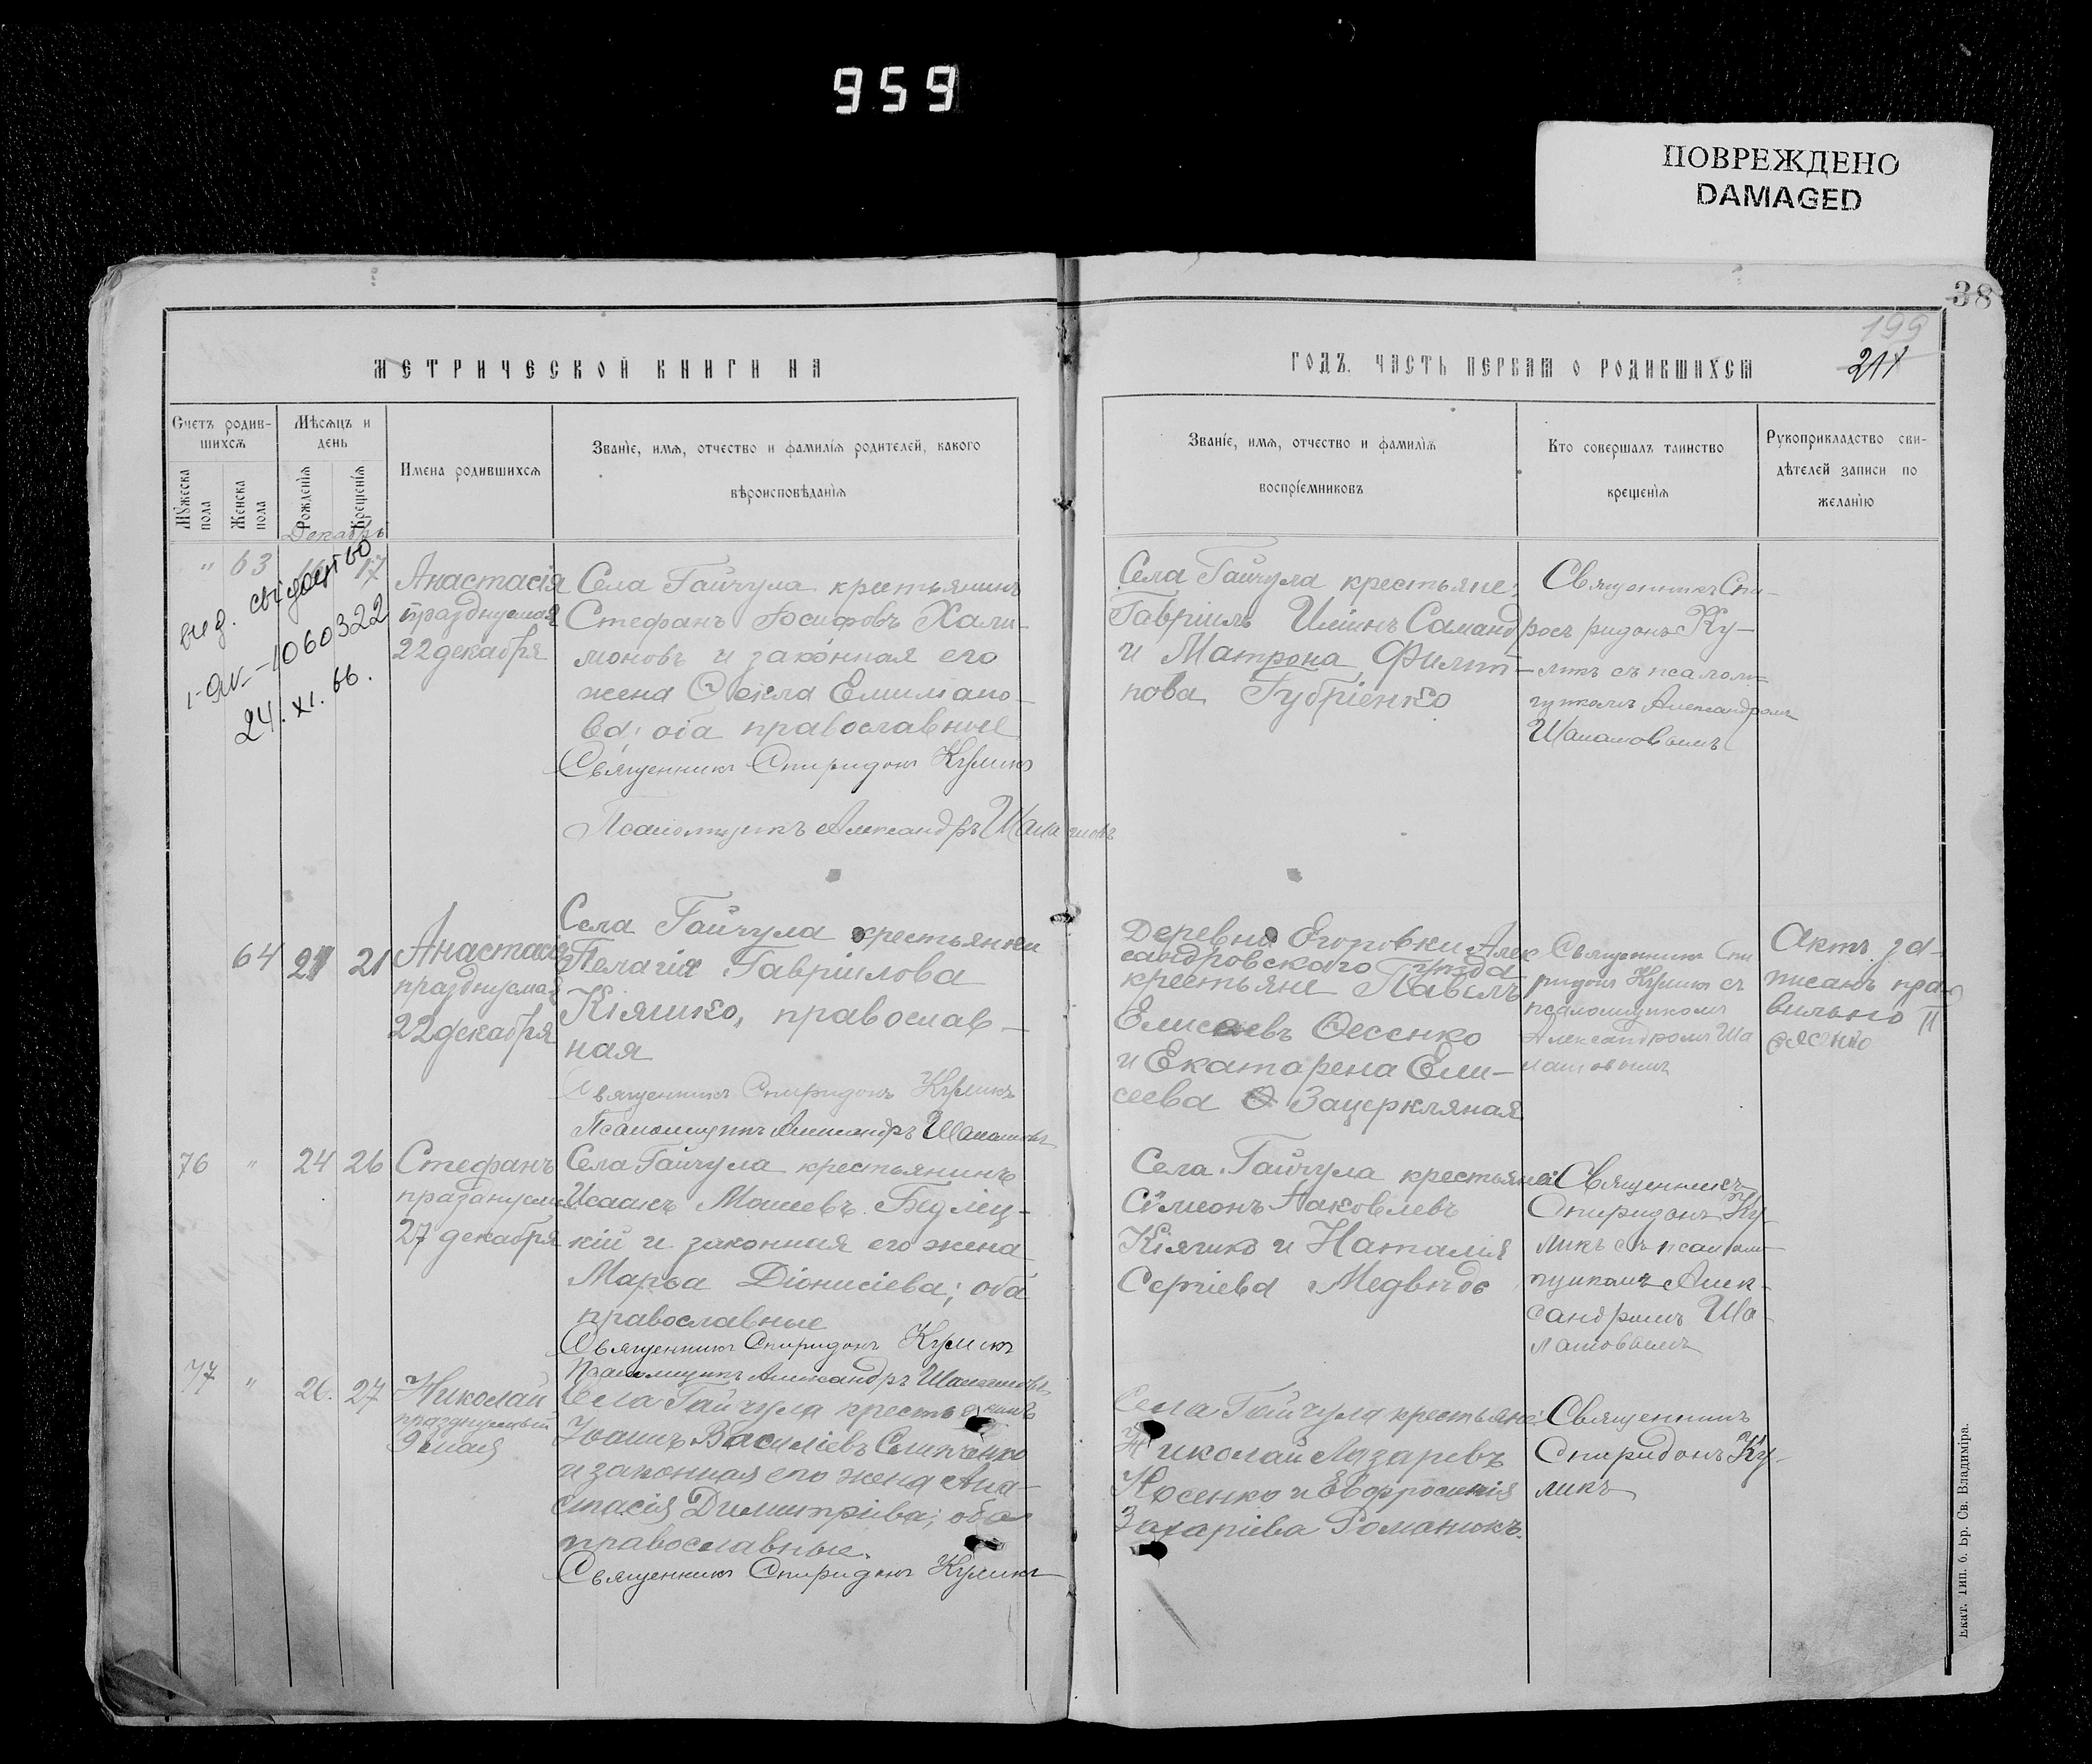 959
ПОВРЕЖДЕНО
DAMAGED
38
199
211
МЕТРИЧЕСКОЙ КНИГИ НА
ГОДЪ, ЧАСТЬ ПЕРВАЯ О РОДИВШИХСЯ
Счетъ родив-
шихся
Мужеска
пола
Женска
пола
Мѣсяцъ и
день
Рожденія
Крещенія
Имена родившихся
Званіе, имя, отчество и фамилія родителей, какого
вѣроисповѣданія
Званіе, имя, отчество и фамилія
воспріемниковъ
Кто совершалъ таинство
крещенія
Рукоприкладство сви-
дѣтелей записи по
желанію
Декабрь
" 63 16 17
24. XI. 66.
Анастасія
празднуемая
22 декабря
Села Гайчула крестьянинъ
Стефанъ Іосифовъ Хали-
моновъ и законная его
жена Ѳекла Емилiано-
ва; оба православные
Священникъ Спиридонъ Куликъ
Псаломщикъ Александръ
Села Гайчула крестьяне:
Гавріилъ Саманд
и Матрона Филип-
пова Губріенко
Священникъ Спи-
ридонъ Ку-
ликъ съ псалом-
щикомъ Александромъ
64 21 21
Анастасія
празднуемая
22 декабря
Села Гайчула крестьянки
Пелагія Гавріилова
Кіяшко, православ-
ная
Священникъ Спиридонъ Куликъ
Псаломщикъ Александръ
Деревни Егоровки Алек
сандровскаго уѣзда
крестьяне Павелъ
Елисеевъ Ѳесенко
и Екатерена Ели-
сеева Зацеркляная
Священникъ Спи
ридонъ Куликъ съ
псаломщикомъ
Александромъ
Актъ за-
писанъ пра
вильно П
76 " 24 26
Стефанъ
27 декабря
Села Гайчула крестьянинъ
Исаакъ Моисеевъ Бѣдлец-
кій и законная его жена
Марѳа Діонисіева; оба
православные
Священникъ Спиридонъ Куликъ
Псаломщикъ Александръ
Села Гайчула крестьяне:
Сѵмеонъ Іаковлевъ
Кіяшко и Наталія
Сергіева Медвѣдь
Священникъ
Спиридонъ Ку-
ликъ съ псалом-
щикомъ Алек-
сандромъ
77 " 26. 27
Николай
празднуемый
9 мая
Села Гайчула крестьянинъ
Іоаннъ Василіевъ
и законная его жена Ана-
стасія Димитріева; оба
православные.
Священникъ Спиридонъ Куликъ
Села Гайчула крестьяне:
Николай Лазаревъ
Носенко и Евфросинія
Захаріева Романюкъ.
Священникъ
Спиридонъ Ку-
ликъ
Екат. Тип. б. Бр. Св. Владиміра.